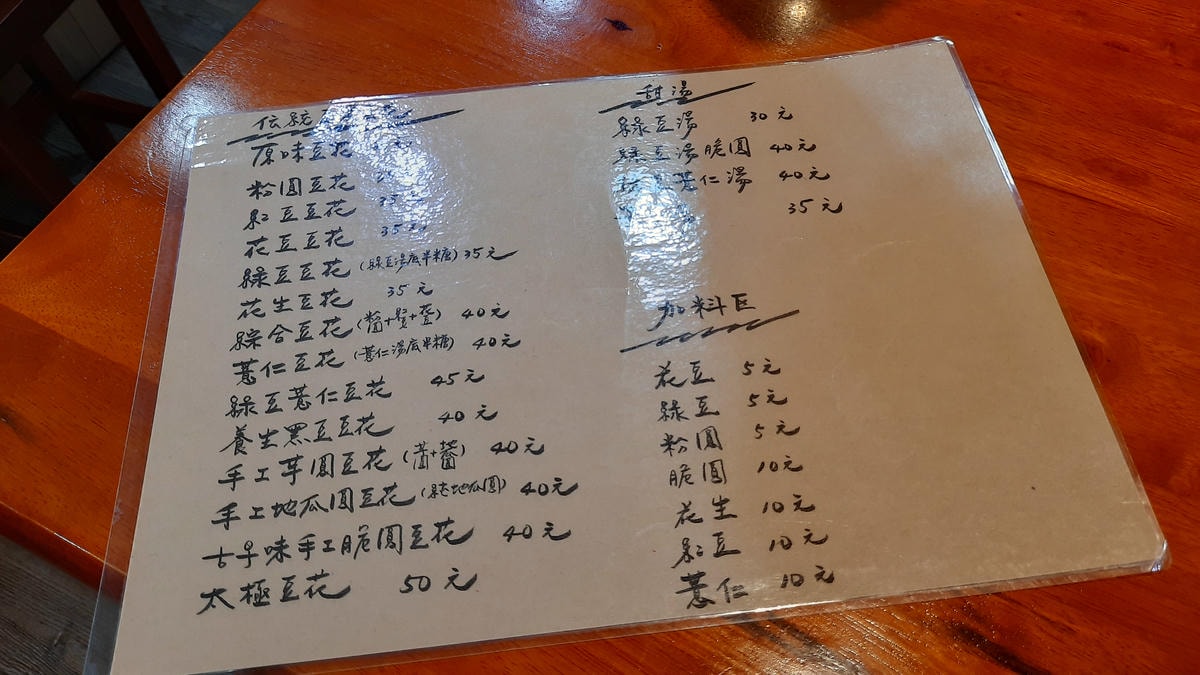 伝統
原味豆花
粉圓豆花
紅豆豆花 35元
花豆豆花 35元
綠豆豆花(綠豆湯底半糖)35元
花生豆花 35元
綜合豆花 40元
薏仁豆花(薏仁湯底半糖) 40元
綠豆薏仁豆花 45元
養生黑豆豆花 40元
手工芋圓豆花 40元
手工地瓜圓豆花 40元
古早味手工脆圓豆花 40元
太極豆花 50元
甜湯
綠豆湯 30元
綠豆湯脆圓 40元
薏仁湯 40元
35元
加料区
花豆 5元
綠豆 5元
粉圓 5元
脆圓 10元
花生 10元
紅豆 10元
薏仁 10元